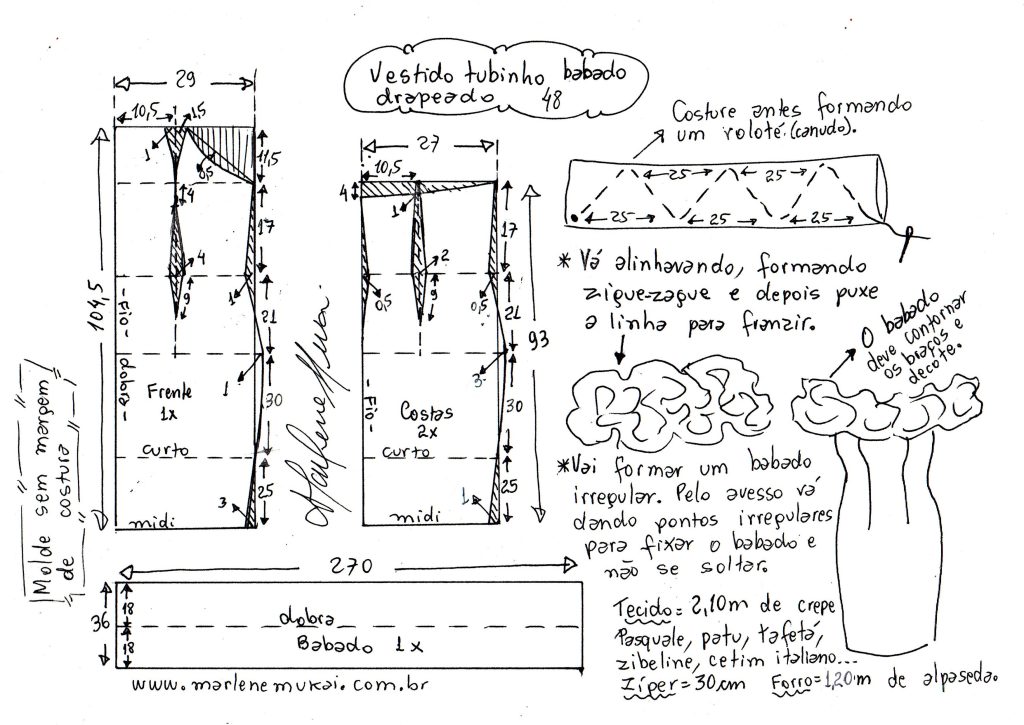 Vestido tubinho babado
drapeado 48
29
10,5
1,5
1
0,5
11,5
4
17
4
9
1
21
104,5
- Fio - dobra -
Frente
1x
1
30
curto
25
3
midi
Molde sem margem
de costura
Marlene Mukai.
27
10,5
4
1
17
2
9
0,5
0,5
21
93
3
- Fio -
Costas
2x
30
curto
25
1
midi
270
36
18
18
dobra
Babado 1x
www.marlenemukai.com.br
Costure antes formando
um roloté.(canudo).
25
25
25
25
25
* Vá alinhavando, formando
zigue-zague e depois puxe
a linha para franzir.
O babado
deve contornar
os braços e
decote.
* Vai formar um babado
irregular. Pelo avesso vá
dando pontos irregulares
para fixar o babado e
não se soltar.
Tecido = 2,10m de crepe
Pasquale, patu, tafetá,
zibeline, cetim italiano...
Zíper = 30cm Forro = 1,20m de alpaseda.